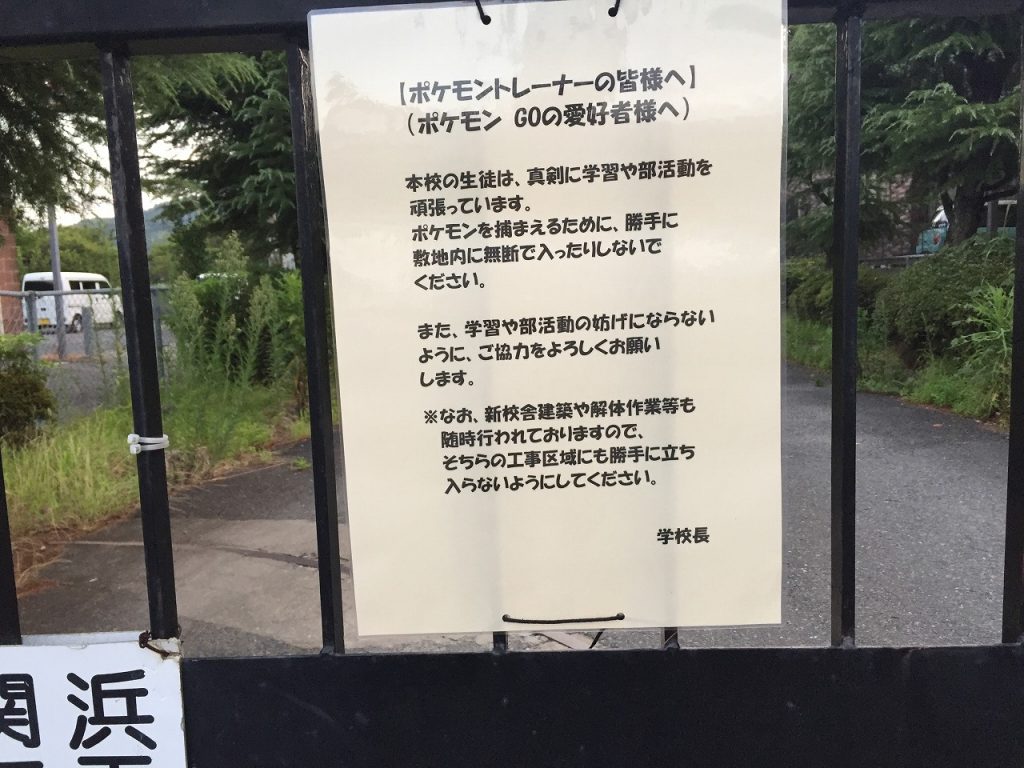 【ポケモントレーナーの皆様へ】
(ポケモン GOの愛好者様へ)
本校の生徒は、真剣に学習や部活動を
頑張っています。
ポケモンを捕まえるために、勝手に
敷地内に無断で入ったりしないで
ください。
また、学習や部活動の妨げにならない
ように、ご協力をよろしくお願い
します。
※なお、新校舎建築や解体作業等も
随時行われておりますので、
そちらの工事区域にも勝手に立ち
入らないようにしてください。
学校長
関 浜